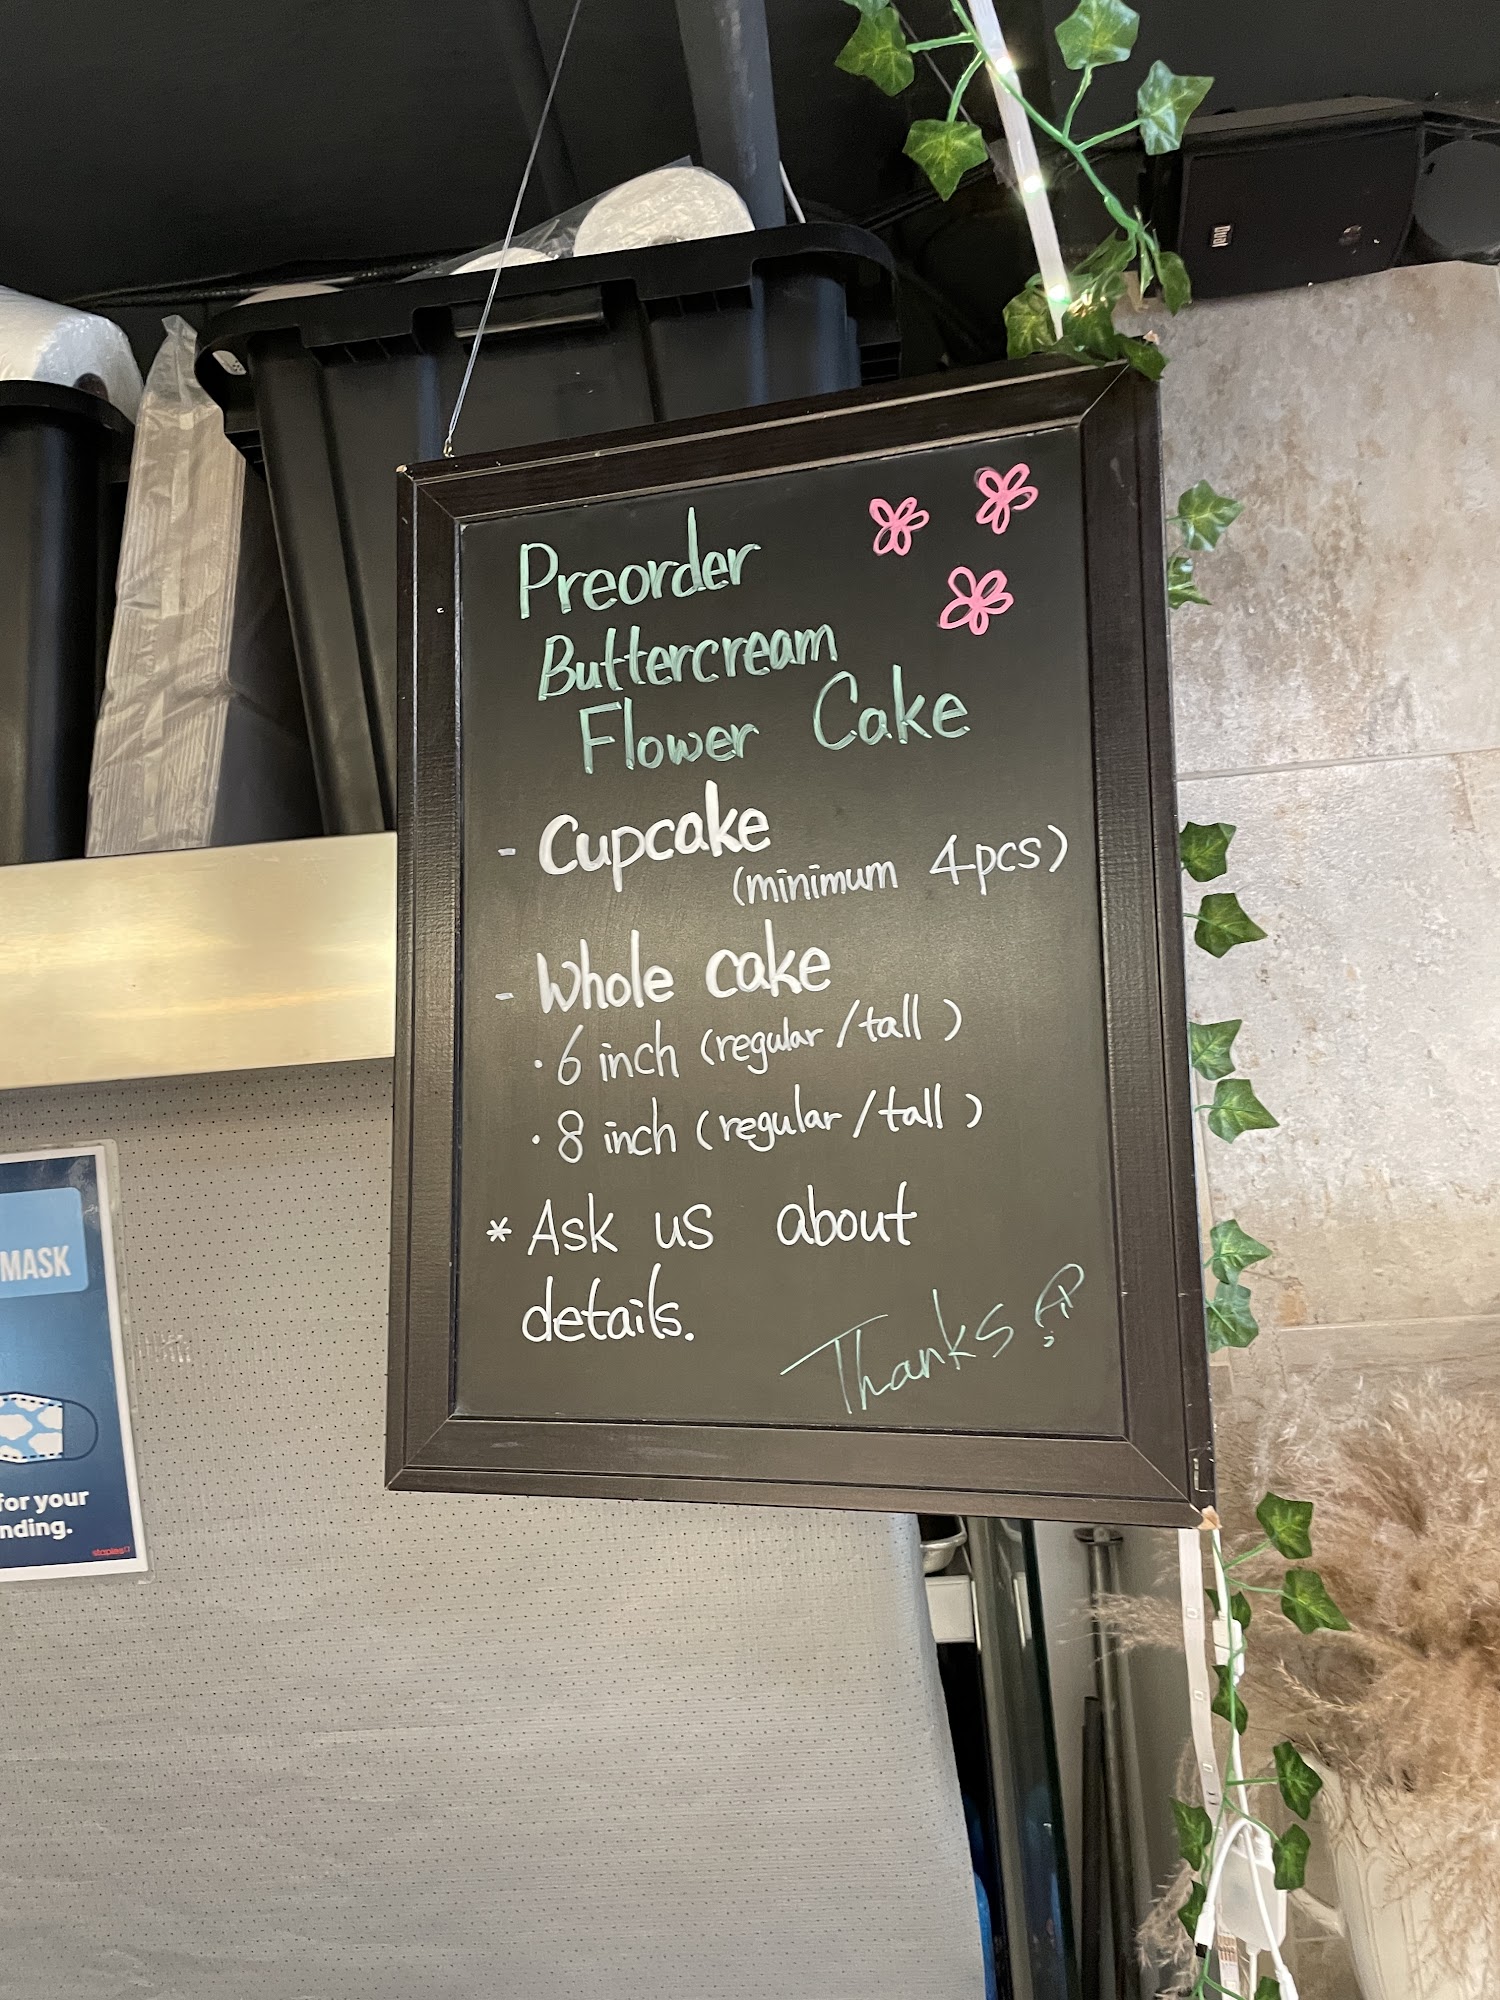 Dual
Preorder
Buttercream
Flower Cake
- Cupcake
(minimum 4pcs)
- Whole cake
· 6 inch (regular/tall)
· 8 inch (regular/tall)
* Ask us about
details.
Thanks
MASK
for your
nding.
staples